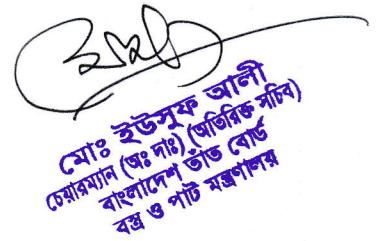 মোঃ ইউসুফ আলী
চেয়ারম্যান (অঃ দাঃ) (অতিরিক্ত সচিব)
বাংলাদেশ তাঁত বোর্ড
বস্ত্র ও পাট মন্ত্রণালয়